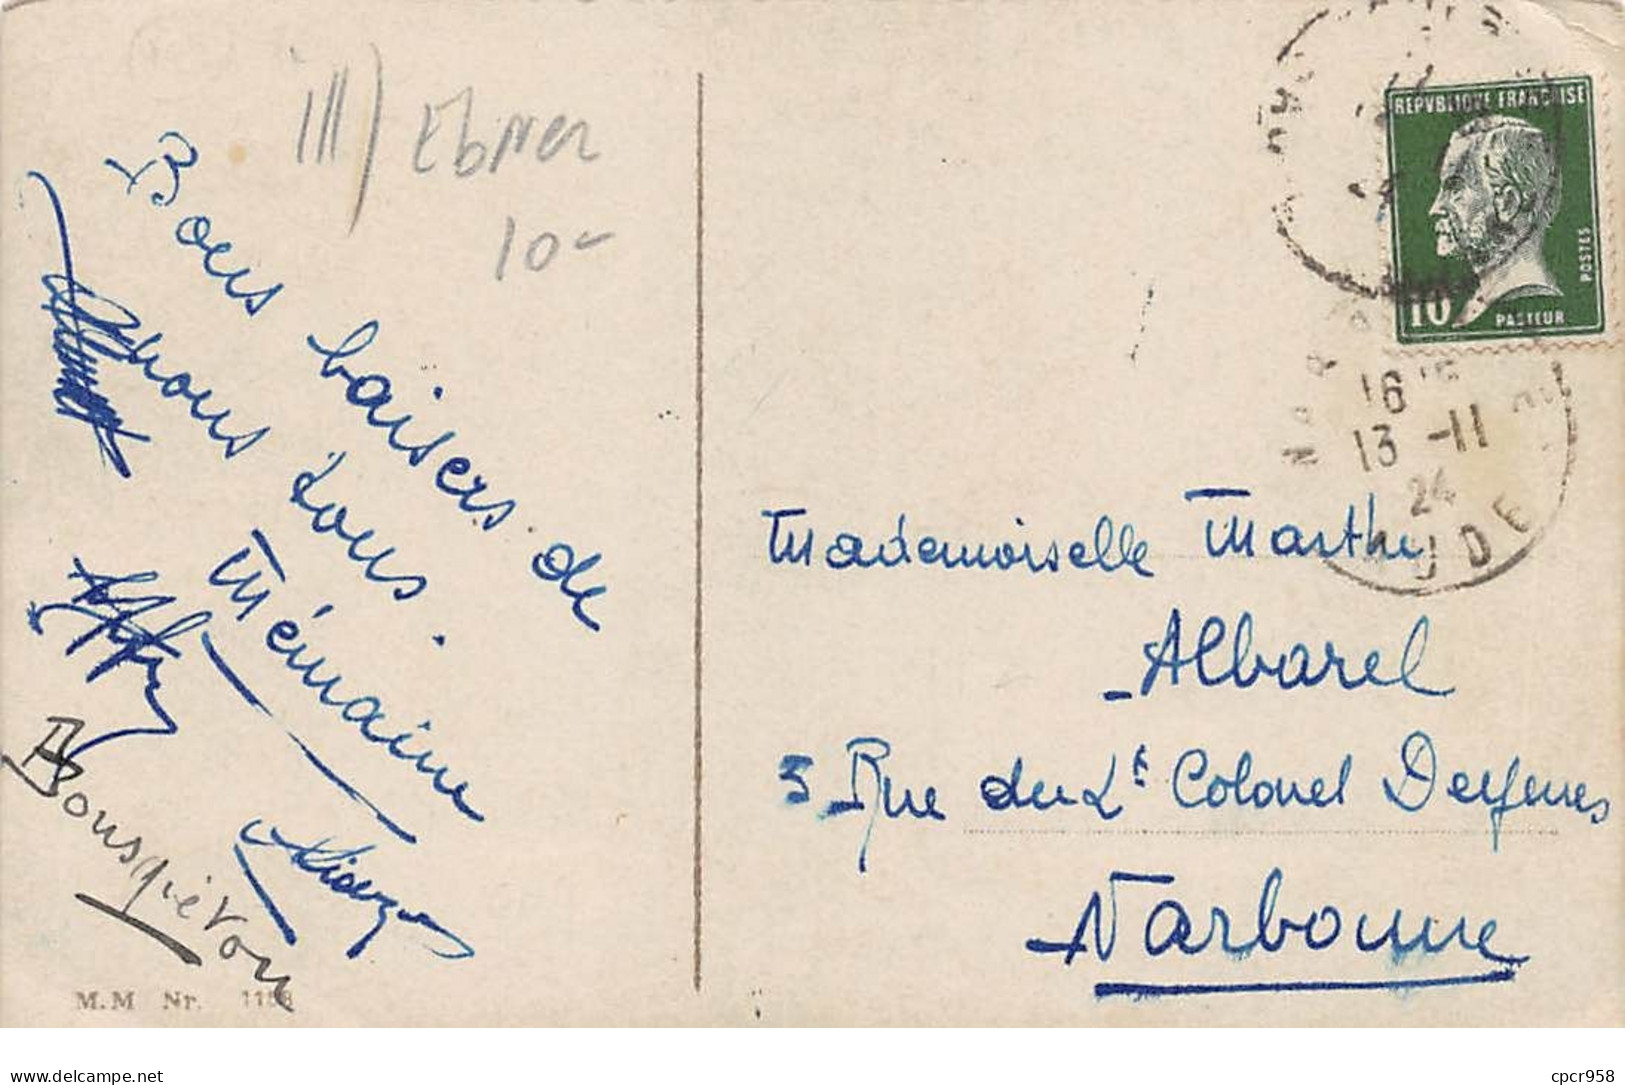 III) Ebner
10-
Bons baisers de
nous tous.
Mémaine
Bousquieron
M.M Nr. 1158
REPVBLIQVE FRANÇAISE
POSTES
10
PASTEUR
16
13 -11
24
AUDE
Mademoiselle Marthe
Albarel
3 Rue du Lt Colonel Deyenes
Narbonne
www.delcampe.net
cpcr958